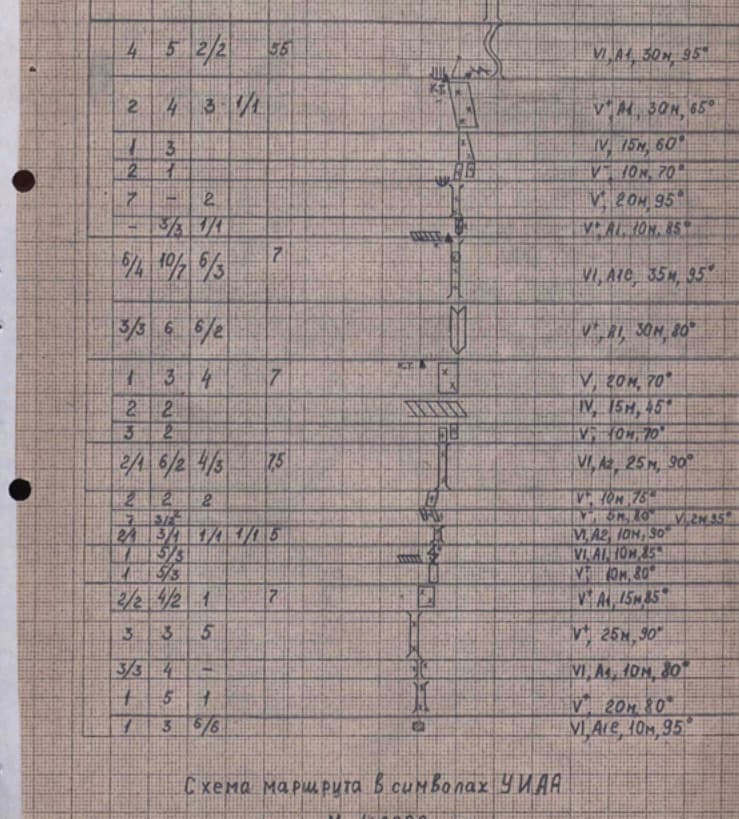 4 5 2/2 55 VI, A1, 30м, 95°
К.Т.
2 4 3 1/1 V⁺, A1, 30м, 65°
1 3 IV, 15м, 60°
2 1 V⁻, 10м, 70°
7 – 2 V⁺, 20м, 95°
– 3/3 1/1 V⁺, A1, 10м, 85°
6/4 10/7 6/3 7 VI, A1e, 35м, 95°
3/3 6 6/2 V⁺, A1, 30м, 80°
К.Т.
1 3 4 7 V, 20м, 70°
2 2 IV, 15м, 45°
3 2 V⁻, 10м, 70°
2/1 6/2 4/3 7,5 VI, A2, 25м, 90°
2 2 2 V⁺, 10м, 75°
7 5м, 80° VI, 2м, 95°
2/1 3/1 1/1 1/1 5 VI, A2, 10м, 90°
1 5/3 VI, A1, 10м, 85°
1 5/3 V⁺, 10м, 80°
2/2 4/2 1 7 V⁺, A1, 15м, 85°
3 3 5 V⁺, 25м, 90°
3/3 4 – VI, A1, 10м, 80°
1 5 1 V⁺, 20м, 80°
1 3 6/6 VI, A1e, 10м, 95°
Схема маршрута в символах УИАА